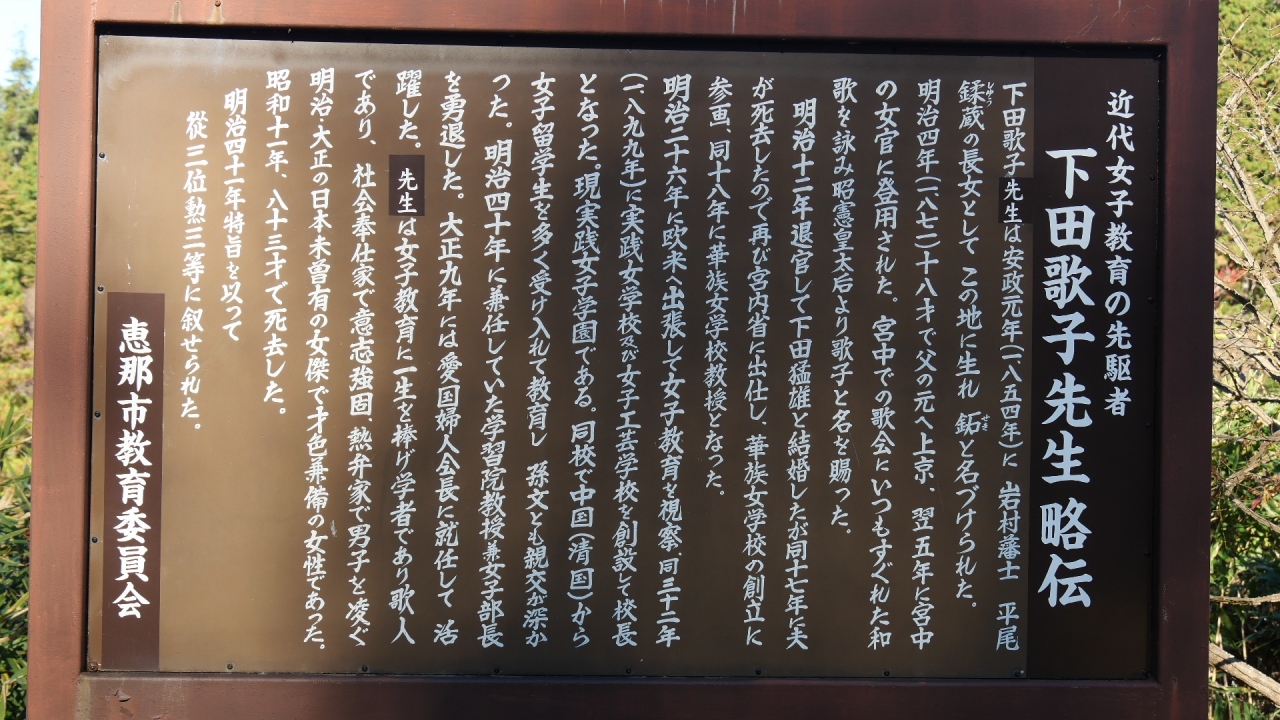 近代女子教育の先駆者
下田歌子先生略伝
下田歌子先生は安政元年(一八五四年)に 岩村藩士 平尾
鍒蔵の長女として この地に生れ 鉐と名づけられた。
明治四年(一八七一)十八才で父の元へ上京、翌五年に宮中
の女官に登用された。宮中での歌会にいつもすぐれた和
歌を詠み昭憲皇太后より歌子と名を賜った。
明治十二年退官して下田猛雄と結婚したが同十七年に夫
が死去したので再び宮内省に出仕し、華族女学校の創立に
参画、同十八年に華族女学校教授となった。
明治二十六年に欧米へ出張して女子教育を視察、同三十二年
(一八九九年)に実践女学校及び女子工芸学校を創設して校長
となった。現実践女子学園である。同校で中国(清国)から
女子留学生を多く受け入れて教育し 孫文とも親交が深か
った。明治四十年に兼任していた学習院教授兼女子部長
を勇退した。大正九年には愛国婦人会長に就任して 活
躍した。先生は女子教育に一生を捧げ学者であり歌人
であり、社会奉仕家で意志強固、熱弁家で男子を凌ぐ
明治・大正の日本未曽有の女傑で才色兼備の女性であった。
昭和十一年、八十三才で死去した。
明治四十一年特旨を以って
從三位勲三等に叙せられた。
恵那市教育委員会